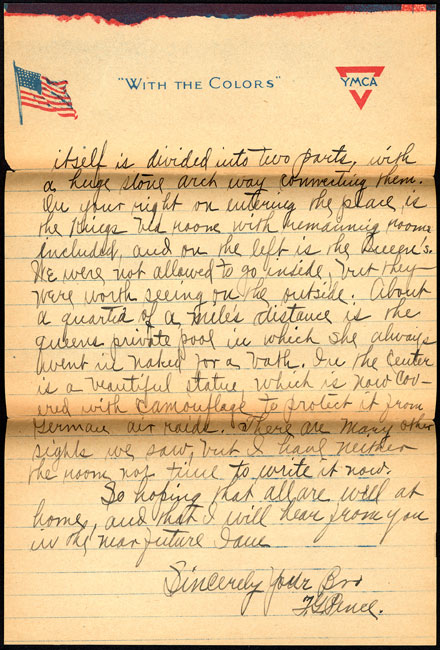 "WITH THE COLORS"
YMCA
itself is divided into two parts, with
a huge stone arch way connecting them.
On your right on entering the place, is
the Kings bed room with remaining rooms
included, and on the left is the Queen's.
We were not allowed to go inside, but they
were worth seeing on the outside. About
a quarter of a mile's distance is the
queens private pool in which she always
went in naked for a bath. In the center
is a beautiful statue which is now cov-
ered with camouflage to protect it from
German air raids. There are many other
sights we saw, but I have neither
the room not time to write it now.
So hoping that all are well at
home, and that I will hear from you
in the near future I am
Sincerely Your Bro
Pence.